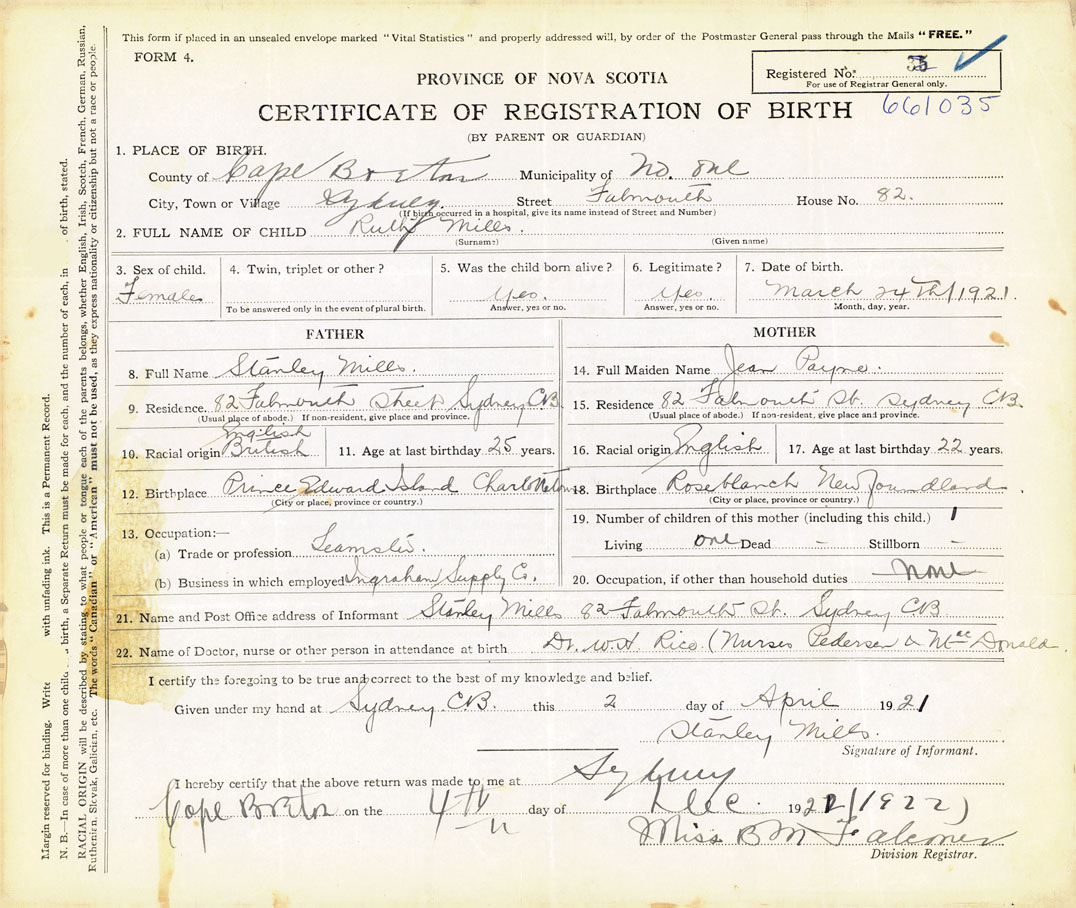 This form if placed in an unsealed envelope marked "Vital Statistics" and properly addressed will, by order of the Postmaster General pass through the Mails "FREE."
FORM 4.
Registered No.
For use of Registrar General only.
661035
PROVINCE OF NOVA SCOTIA
CERTIFICATE OF REGISTRATION OF BIRTH
(BY PARENT OR GUARDIAN)
1. PLACE OF BIRTH.
County of Cape Breton Municipality of No. one
City, Town or Village Sydney. Street Falmouth House No. 82.
(If birth occurred in a hospital, give its name instead of Street and Number)
2. FULL NAME OF CHILD Ruth Mills.
(Surname) (Given name)
3. Sex of child. 4. Twin, triplet or other? 5. Was the child born alive? 6. Legitimate? 7. Date of birth.
Females yes. yes. March 24th/1921.
To be answered only in the event of plural birth. Answer, yes or no. Answer, yes or no. Month, day, year.
FATHER MOTHER
8. Full Name Stanley Mills. 14. Full Maiden Name Jean Payne.
9. Residence. 82 Falmouth Street Sydney CB. 15. Residence 82 Falmouth St. Sydney CB.
(Usual place of abode.) If non-resident, give place and province. (Usual place of abode.) If non-resident, give place and province.
English
10. Racial origin British 11. Age at last birthday 25 years. 16. Racial origin English 17. Age at last birthday 22 years.
12. Birthplace Prince Edward Island Charlottetown 18. Birthplace Roseblanch Newfoundland
(City or place, province or country.) (City or place, province or country.)
13. Occupation:—
19. Number of children of this mother (including this child.) 1
(a) Trade or profession Teamster. Living one Dead – Stillborn –
(b) Business in which employed Ingraham Supply Co. 20. Occupation, if other than household duties None
21. Name and Post Office address of Informant Stanley Mills 82 Falmouth St. Sydney CB
22. Name of Doctor, nurse or other person in attendance at birth Dr. W.H. Rice (Nurses Pedersen & MacDonald.
I certify the foregoing to be true and correct to the best of my knowledge and belief.
Given under my hand at Sydney C.B. this 2 day of April 1921
Stanley Mills.
Signature of Informant.
I hereby certify that the above return was made to me at Sydney
Cape Breton on the 4th day of Dec. 192 (1922)
Miss B M Falconer
Division Registrar.
Margin reserved for binding. Write with unfading ink. This is a Permanent Record.
N. B.—In case of more than one child birth, a Separate Return must be made for each, and the number of each, in of birth, stated.
RACIAL ORIGIN will be described by stating to what people or tongue each of the parents belongs, whether English, Irish, Scotch, French, German, Russian,
Ruthenian, Slovak, Galician, etc. The words "Canadian" or "American" must not be used, as they express nationality or citizenship but not a race or people.